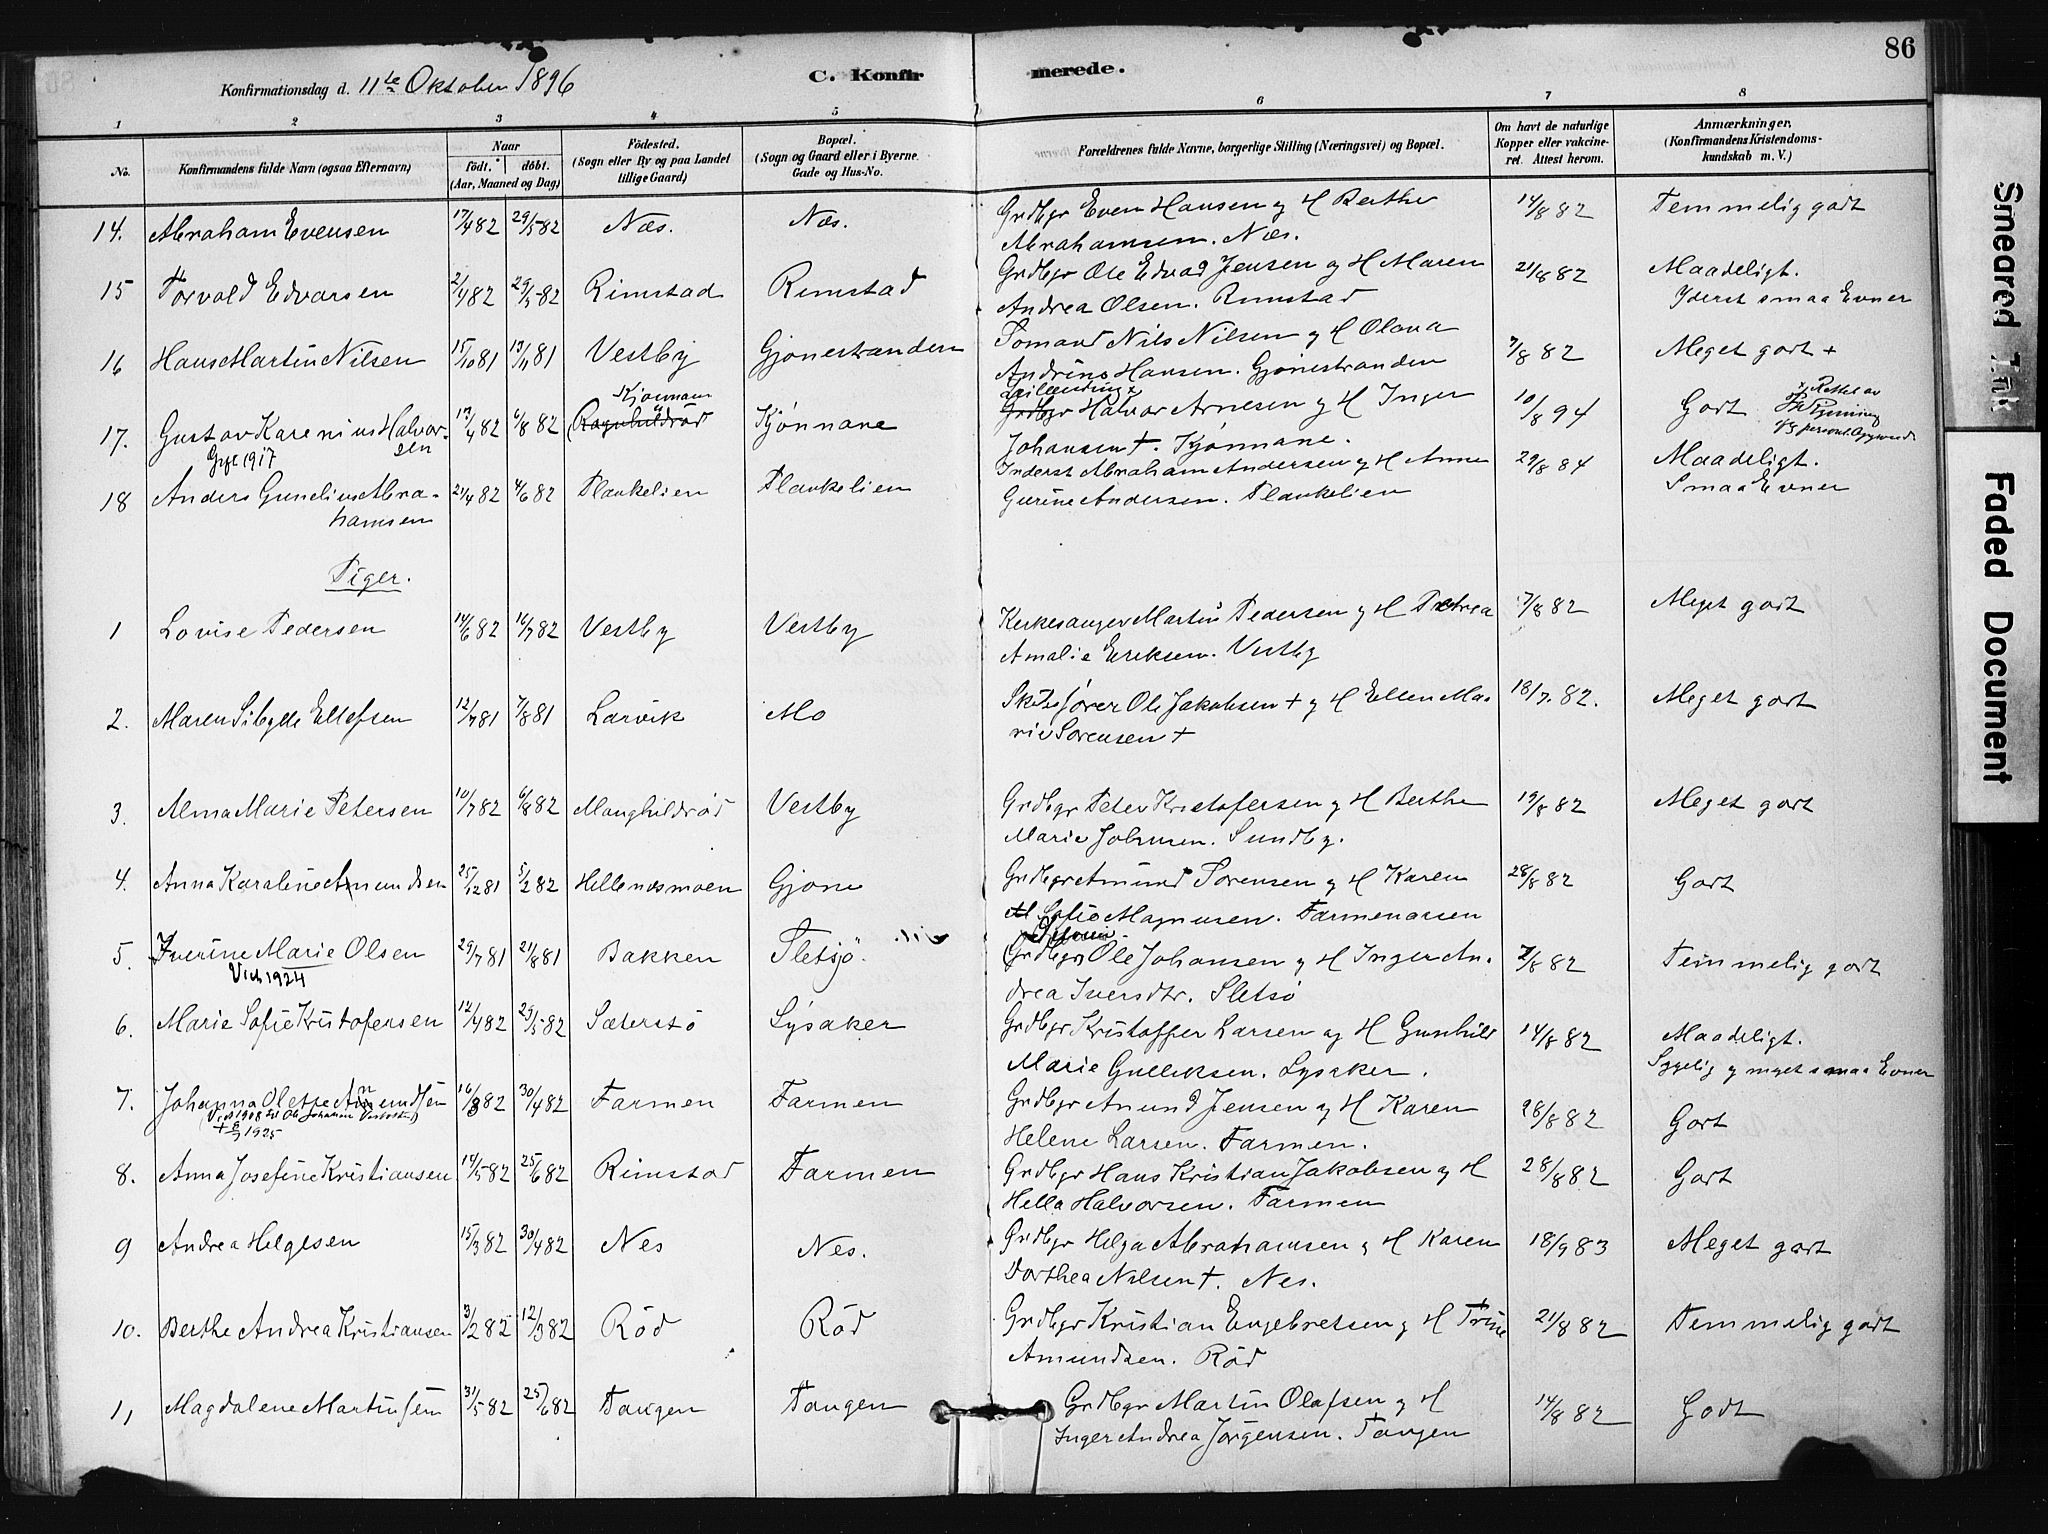 86
Konfirmationsdag d. 11te Oktober 1896
C. Konfirmerede.
1 2 3 4 5 6 7 8
No.
Konfirmandens fulde Navn (ogsaa Efternavn)
Naar
födt. döbt.
(Aar, Maaned og Dag)
Födested.
(Sogn eller By og paa Landet
tillige Gaard)
Bopæl.
(Sogn og Gaard eller i Byerne
Gade og Hus-No.
Forældrenes fulde Navne, borgerlige Stilling (Næringsvei) og Bopæl.
Om havt de naturlige
Kopper eller vakcine-
ret. Attest herom.
Anmærkninger.
(Konfirmandens Kristendoms-
kundskab m. V.)
14. Abraham Evensen 17/4 82 29/5 82 Næs. Næs. Grdbgr Even Hansen og H Berthe 14/8 82 Temmelig godt
Abrahamsen. Næs.
15 Torvald Edvarsen 2/4 82 29/5 82 Rimstad Rimstad Grdbgr Ole Edvad Jensen og H Maren 21/8 82 Maadeligt.
Andrea Olsen. Rimstad Yderst smaa Evner
16 Hans Martin Nilsen 15/10 81 13/11 81 Vestby Gjonestranden Somand Nils Nilsen og H Olava 7/8 82 Meget godt +
Andrine Hansen. Gjonestranden
17. Gustav Karenius Halvor- 13/4 82 6/8 82 Ragnhildrød Kjønnane Kjønnane Grdbgr Halvor Arnesen og H Inger 10/8 94 Godt
sen Johansen +. Kjønnane.
Gift 1917
18 Anders Gunelius Abra- 21/4 82 4/6 82 Plankelien Plankelien Inderst Abraham Andersen og H Anne 29/8 84 Maadeligt.
hamsen Gurine Andersen. Plankelien Smaa Evner
Piger.
1 Lovise Pedersen 14/6 82 16/7 82 Vestby Vestby Kirkesanger Martin Pedersen og H Petrea 7/8 82 Meget godt
Amalie Eriksen. Vestby
2. Maren Sibylle Ellefsen 12/7 81 7/8 81 Larvik Mo Skibsfører Ole Jakobsen + og H Ellen Ma- 18/7. 82. Meget godt
rie Sorensen +
3. Alma Marie Petersen 10/7 82 6/8 82 Manghildrød Vestby Grdbgr Peter Kristofersen og H Berthe 19/8 82 Meget godt
Marie Johnsen. Sundby.
4. Anna Karaline Amundsen 25/12 81 5/2 82 Hellenæsmoen Gjone Grdbgr Amund Sorensen og H Karen 28/8 82 Godt
Sofie Magnusen. Farmenaasen
5. Iverine Marie Olsen 29/7 81 21/8 81 Bakken Sletsjö. Grdbgr Ole Johansen og H Inger An- 7/8 82 Temmelig godt
Viet 1924 drea Iversdtr. Sletsö
6. Marie Sofie Kristofersen 12/4 82 29/5 82 Sæterstø Lysaker Grdbgr Kristoffer Larsen og H Gunhild 14/8 82 Maadeligt.
Marie Gulliksen. Lysaker. Sygelig og meget smaa Evner
7. Johanna Olette Anundsen 16/3 82 30/4 82 Farmen Farmen Grdbgr Anund Jensen og H Karen 28/8 82 Godt
+ 1925 Helene Larsen. Farmen.
8. Anna Josefine Kristiansen 14/5 82 25/6 82 Rimstad Farmen Grdbgr Hans Kristian Jakobsen og H 28/8 82 Godt
Hella Halvorsen. Farmen
9 Andrea Helgesen 15/3 82 30/4 82 Nes Nes. Grdbgr Helge Abrahamsen og H Karen 18/9 83 Meget godt
Dorthea Nilsen +. Nes.
10. Berthe Andrea Kristiansen 3/2 82 12/3 82 Röd Röd Grdbgr Kristian Engebretsen og H Trine 21/8 82 Temmelig godt
Amundsen. Röd
11 Magdalene Martinsen 31/5 82 25/6 82 Tangen Tangen Grdbgr Martin Olafsen og H 14/8 82 Godt
Inger Andrea Jørgensen. Tangen
Smeared Ink
Faded Document